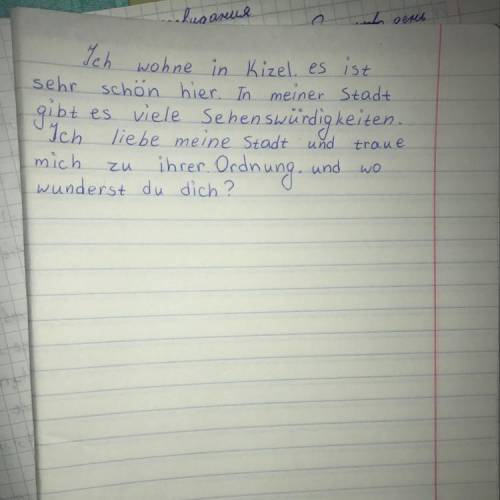 Ich wohne in Kizel. es ist
sehr schön hier. In meiner Stadt
gibt es viele Sehenswürdigkeiten.
Ich liebe meine Stadt und traue
mich zu ihrer Ordnung. und wo
wunderst du dich?